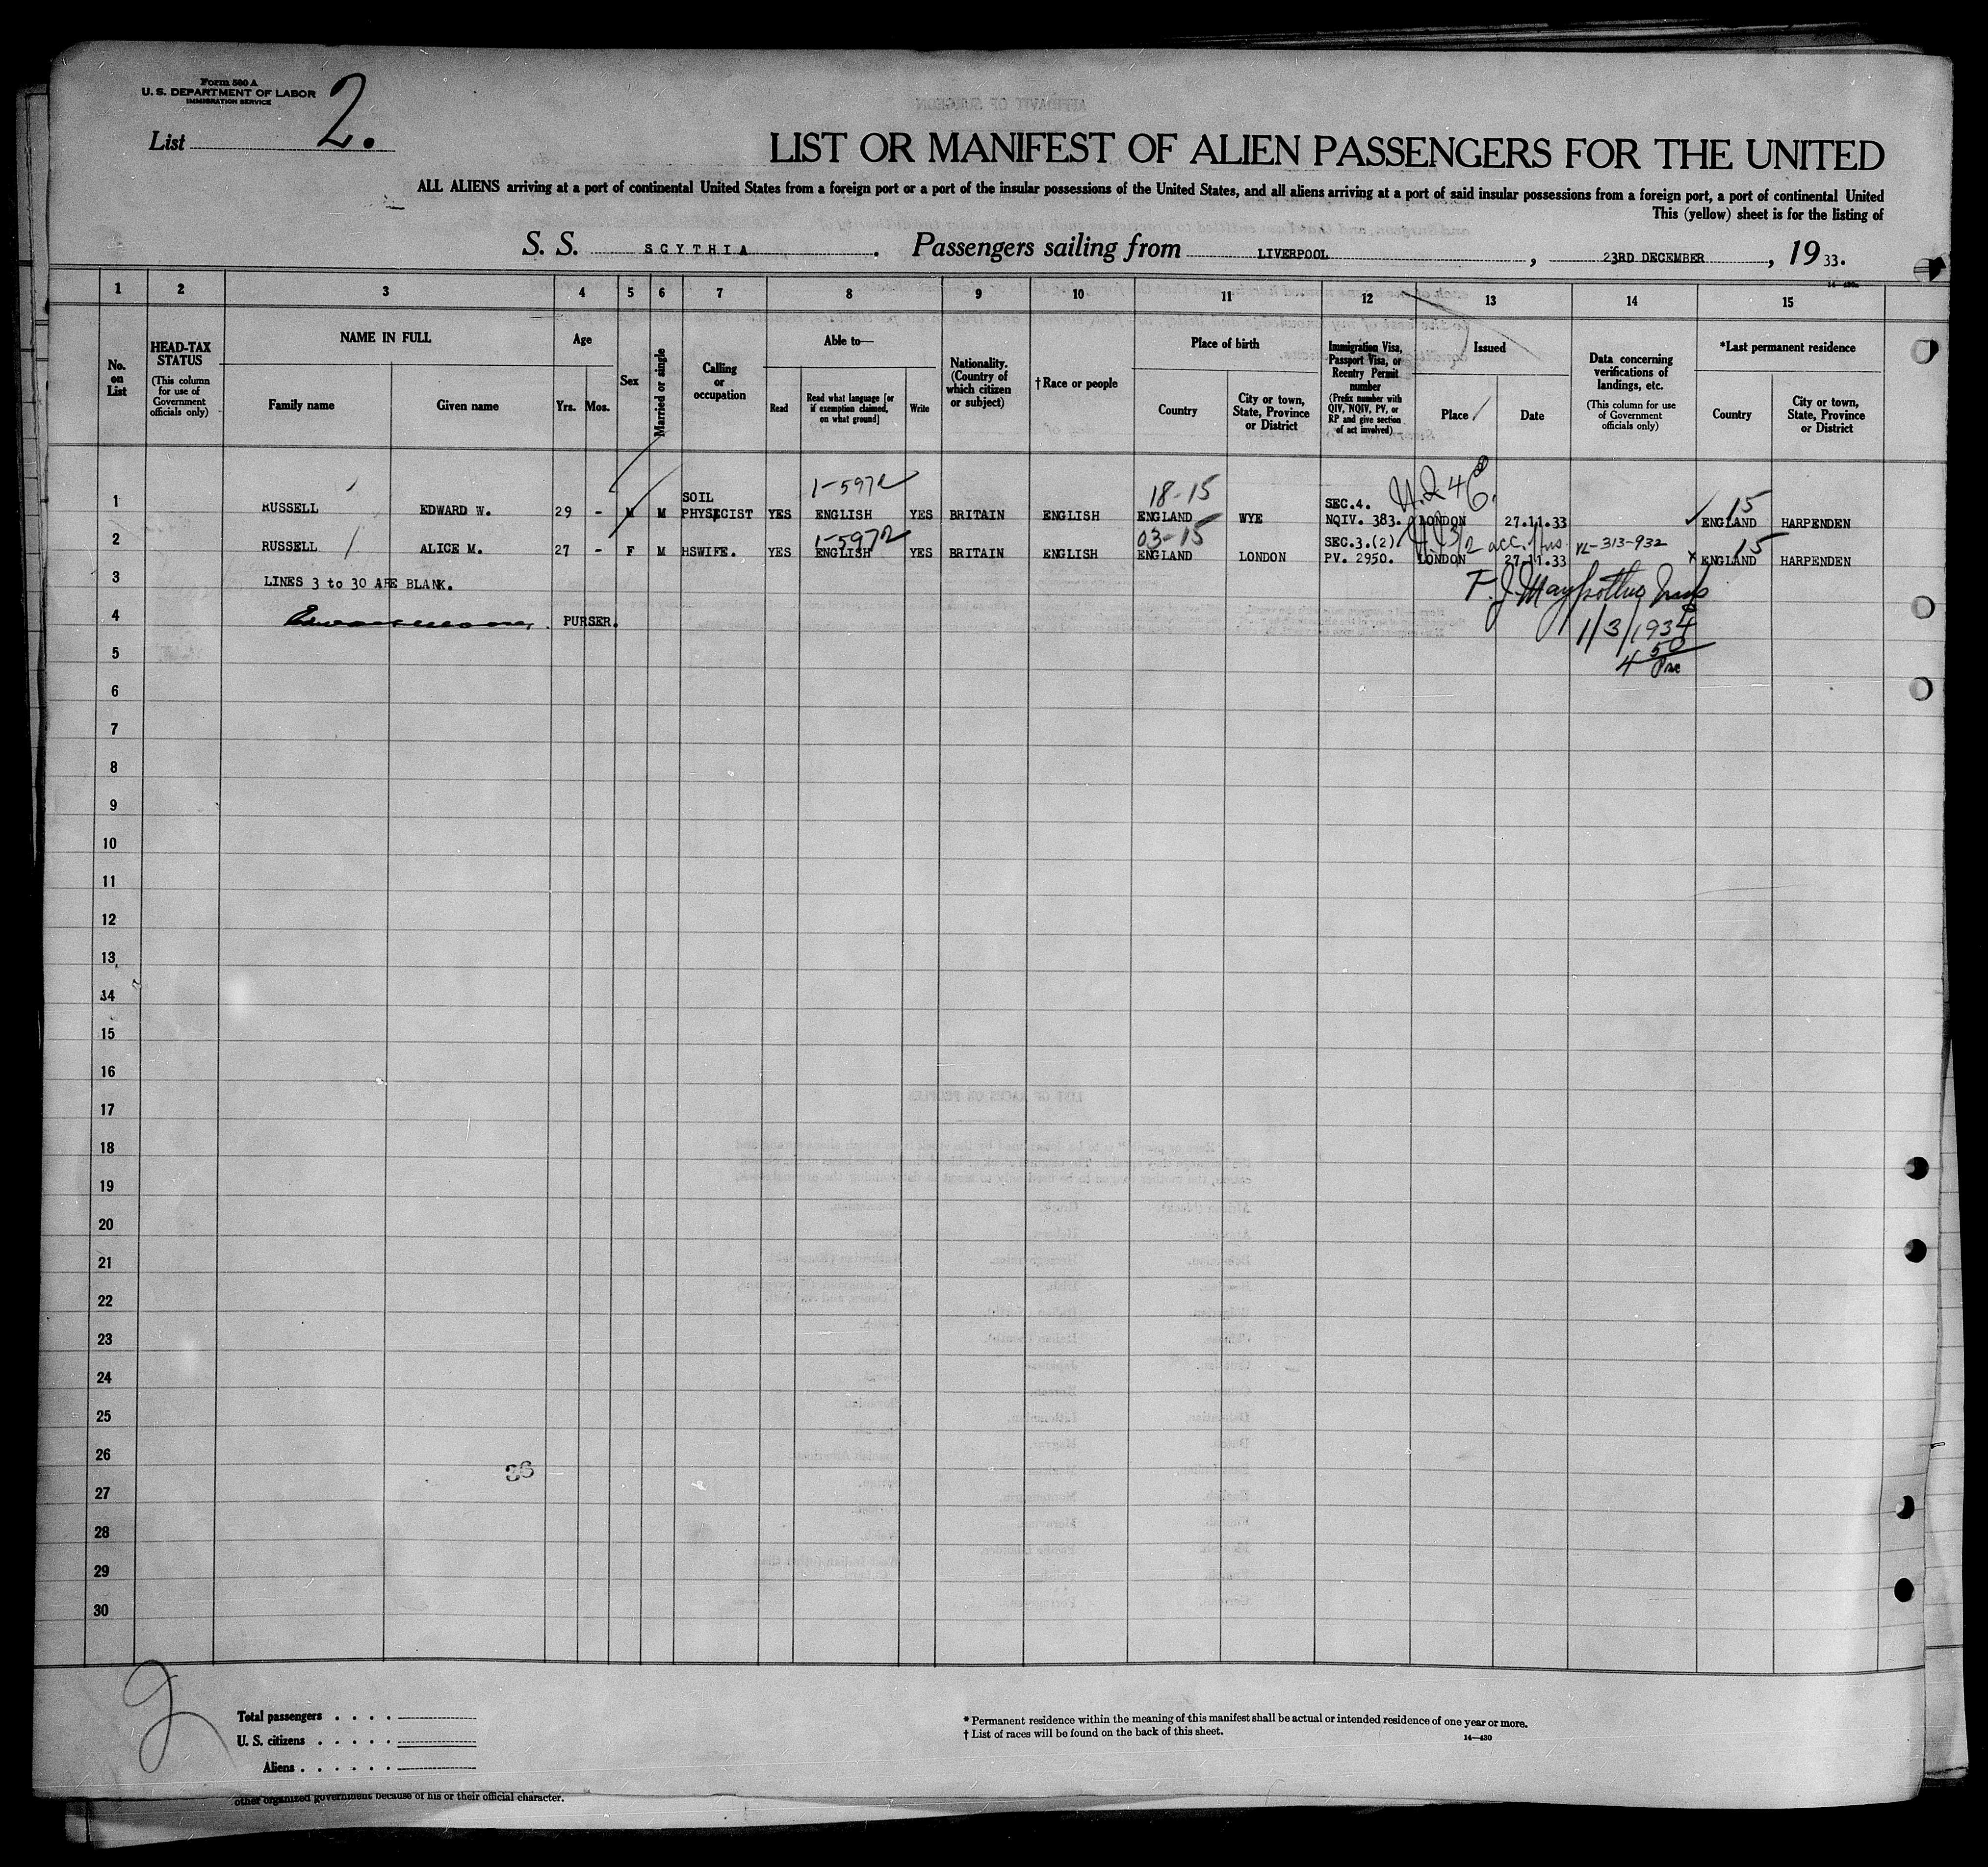 Form 500 A
U. S. DEPARTMENT OF LABOR
IMMIGRATION SERVICE
List 2.
LIST OR MANIFEST OF ALIEN PASSENGERS FOR THE UNITED
ALL ALIENS arriving at a port of continental United States from a foreign port or a port of the insular possessions of the United States, and all aliens arriving at a port of said insular possessions from a foreign port, a port of continental United
This (yellow) sheet is for the listing of
S. S. SCYTHIA. Passengers sailing from LIVERPOOL, 23RD DECEMBER, 19 33.
1 2 3 4 5 6 7 8 9 10 11 12 13 14 15
No. on List
HEAD-TAX STATUS (This column for use of Government officials only)
NAME IN FULL
Family name Given name
Age
Yrs. Mos.
Sex
Married or single
Calling or occupation
Able to—
Read Read what language [or if exemption claimed, on what ground] Write
Nationality. (Country of which citizen or subject)
† Race or people
Place of birth
Country City or town, State, Province or District
Immigration Visa, Passport Visa, or Reentry Permit number (Prefix number with QIV, NQIV, PV, or RP and give section of act involved)
Issued
Place Date
Data concerning verifications of landings, etc. (This column for use of Government officials only)
*Last permanent residence
Country City or town, State, Province or District
1-5972 18-15 15
1 RUSSELL EDWARD W. 29 - M M SOIL PHYSECIST YES ENGLISH YES BRITAIN ENGLISH ENGLAND WYE SEC.4. NQIV. 383. LONDON 27.11.33 ENGLAND HARPENDEN
1-5972 03-15 VL-313-932 15
2 RUSSELL ALICE M. 27 - F M HSWIFE. YES ENGLISH YES BRITAIN ENGLISH ENGLAND LONDON SEC.3.(2) PV. 2950. LONDON 27.11.33 ENGLAND HARPENDEN
3 LINES 3 to 30 ARE BLANK.
4 PURSER.
1/3/1934
4 50
5
6
7
8
9
10
11
12
13
14
15
16
17
18
19
20
21
22
23
24
25
26
36
27
28
29
30
2
Total passengers . . . .
U. S. citizens . . . . .
Aliens . . . . . .
* Permanent residence within the meaning of this manifest shall be actual or intended residence of one year or more.
† List of races will be found on the back of this sheet.
14—430
other organized government because of his or their official character.